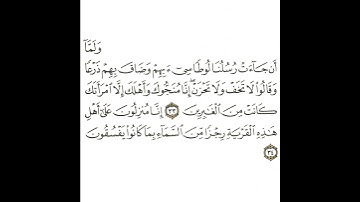 وَلَمَّآ
أَن جَآءَتْ رُسُلُنَا لُوطًا سِيٓءَ بِهِمْ وَضَاقَ بِهِمْ ذَرْعًا
وَقَالُوا۟ لَا تَخَفْ وَلَا تَحْزَنْ ۖ إِنَّا مُنَجُّوكَ وَأَهْلَكَ إِلَّا ٱمْرَأَتَكَ
كَانَتْ مِنَ ٱلْغَـٰبِرِينَ ٣٣ إِنَّا مُنزِلُونَ عَلَىٰٓ أَهْلِ
هَـٰذِهِ ٱلْقَرْيَةِ رِجْزًا مِّنَ ٱلسَّمَآءِ بِمَا كَانُوا۟ يَفْسُقُونَ
٣٤